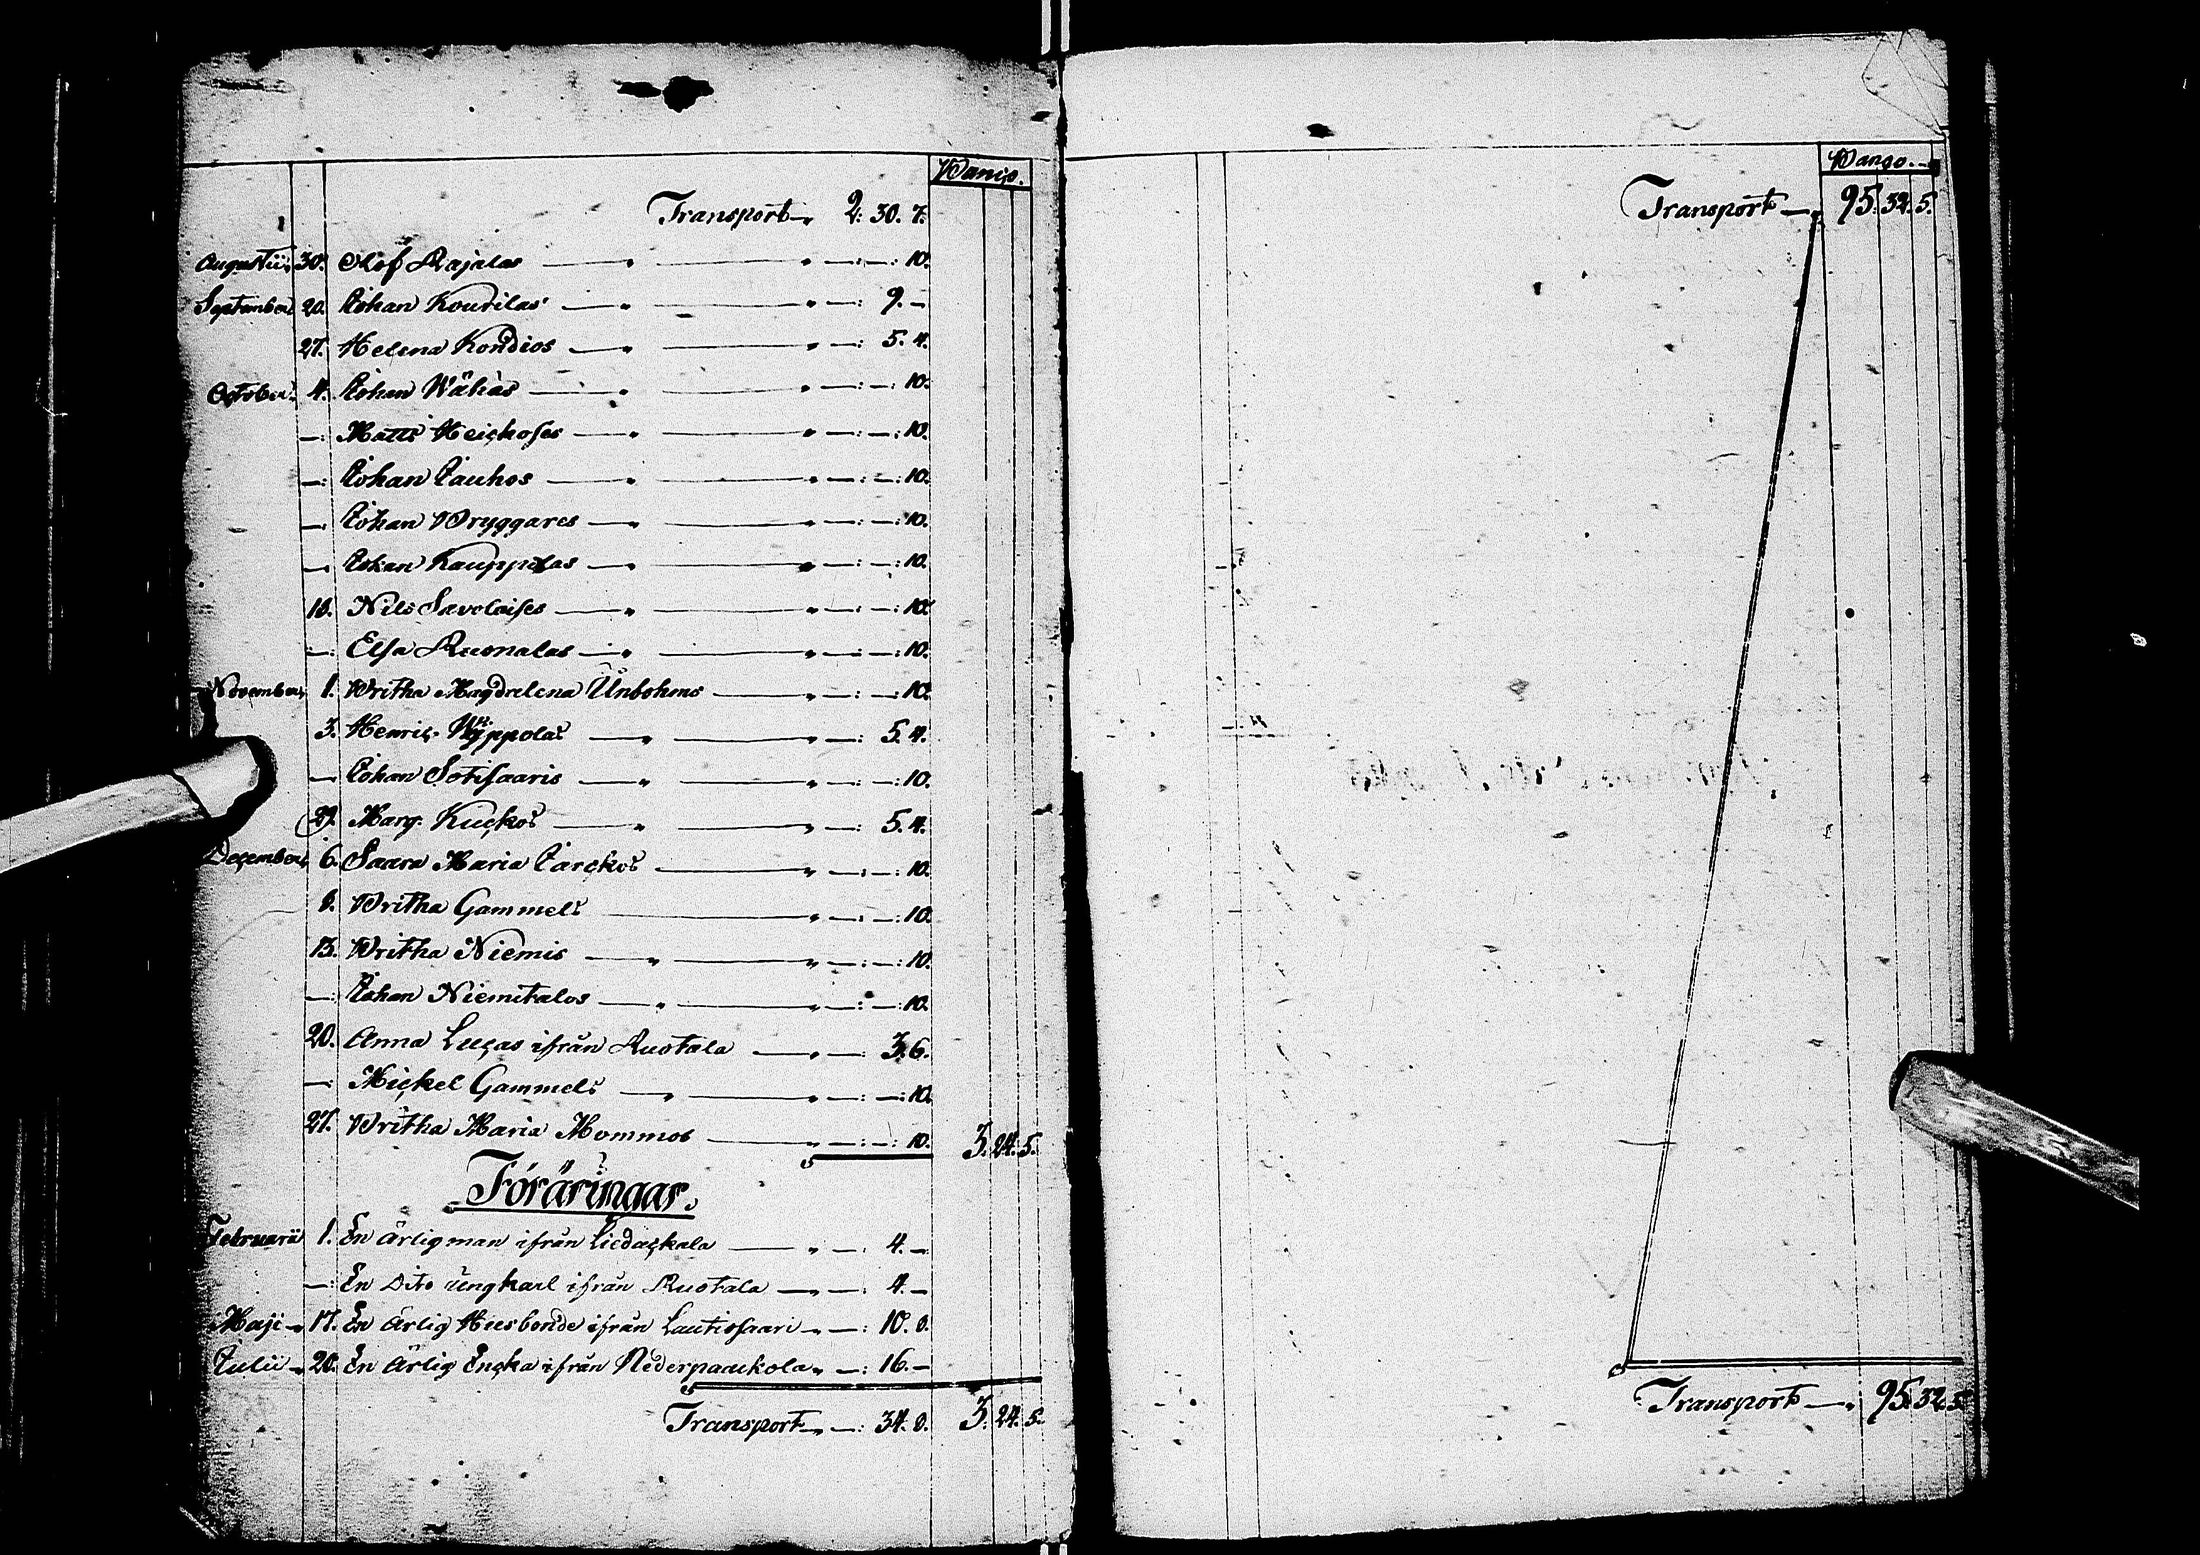 Banco.
Transport 2: 30. 7.
Augustii 30. Olof Rajalas — — : — : 10.
September 20. Johan Kourilas — — : 9. —
27. Helena Kondios — — : 5. 4.
October 4. Johan Wähäs — — : — : 10.
—: Matts Heickoses — — : — : 10.
—: Johan Jauhos — — : — : 10.
—: Johan Bryggares — — : — : 10.
—: Johan Kauppilas — — : — : 10.
18. Nils Savolaises — — : — : 10.
—: Elsa Ruonalas — — : — : 10.
November 1. Britha Magdalena Unbohms — : — : 10.
3. Henric Wyppolas — — : 5. 4.
—: Johan Sotisaaris — — : — : 10.
29. Marg. Kuckos — — : 5. 4.
December 6. Saara Maria Jarckos — : — : 10.
8. Britha Gammels — : — : 10.
13. Britha Niemis — — : — : 10.
—: Johan Niemitalos — — : — : 10.
20. Anna Lucas ifrån Ruotala — : 3. 6.
—: Mickel Gammels — — : — : 10.
27. Britha Maria Mommos — : — : 10. 3. 24. 5.
Föräringar.
Februarii 1. En ärlig man ifrån Liedackala — : 4. —
—: En Dito ungkarl ifrån Ruotala — : 4. —
Maji 17. En ärlig Husbonde ifrån Lautiosaari — : 10. 8.
Julii 20. En ärlig Encka ifrån Nederpaackola — : 16. —
Transport — : 34. 8. 3. 24. 5.
Banco.
Transport — 95. 32. 5.
Transport — 95. 32. 5.